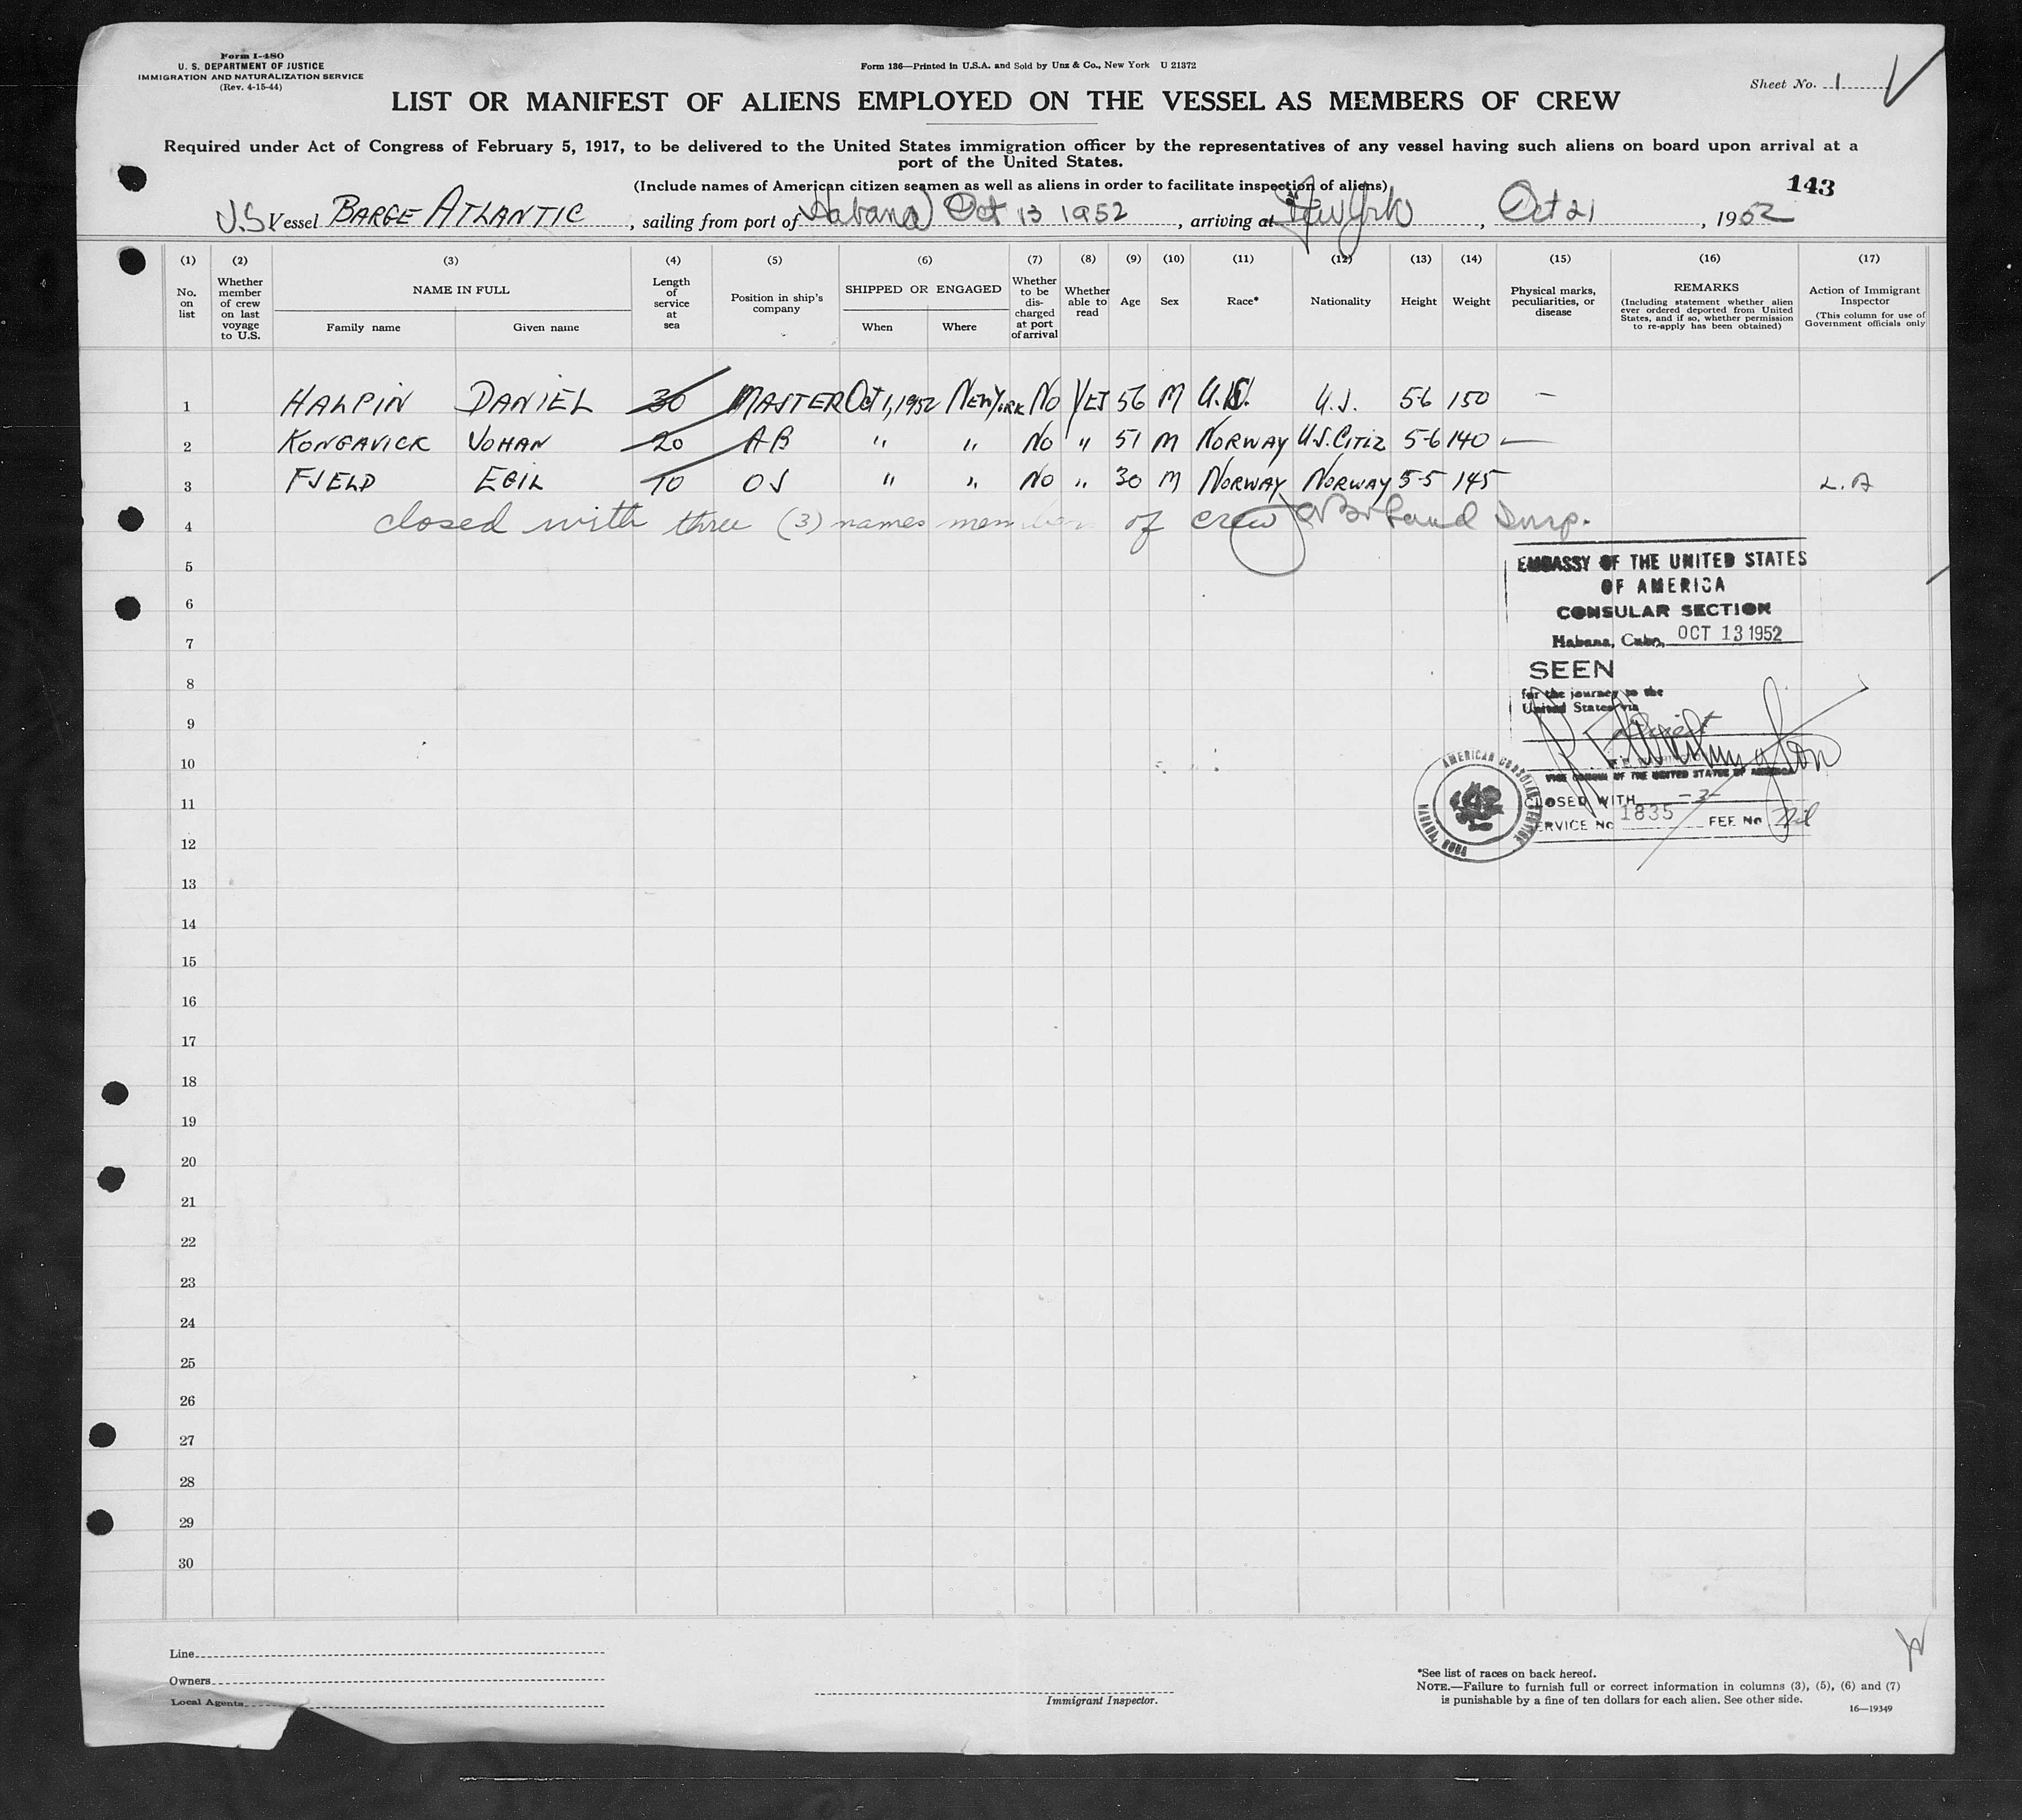 Form I-480
U. S. DEPARTMENT OF JUSTICE
IMMIGRATION AND NATURALIZATION SERVICE
(Rev. 4-15-44)
Form 136—Printed in U.S.A. and Sold by Unz & Co., New York U 21372
Sheet No. 1
LIST OR MANIFEST OF ALIENS EMPLOYED ON THE VESSEL AS MEMBERS OF CREW
Required under Act of Congress of February 5, 1917, to be delivered to the United States immigration officer by the representatives of any vessel having such aliens on board upon arrival at a
port of the United States.
(Include names of American citizen seamen as well as aliens in order to facilitate inspection of aliens)
143
U.S. Vessel BARGE ATLANTIC, sailing from port of Habana Oct 13 1952, arriving at New York, Oct 21, 1952
(1) (2) (3) (4) (5) (6) (7) (8) (9) (10) (11) (12) (13) (14) (15) (16) (17)
No. on list
Whether member of crew on last voyage to U.S.
NAME IN FULL
Family name Given name
Length of service at sea
Position in ship's company
SHIPPED OR ENGAGED
When Where
Whether to be discharged at port of arrival
Whether able to read
Age
Sex
Race*
Nationality
Height
Weight
Physical marks, peculiarities, or disease
REMARKS
(Including statement whether alien ever ordered deported from United States, and if so, whether permission to re-apply has been obtained)
Action of Immigrant Inspector
(This column for use of Government officials only
1 HALPIN DANIEL 30 MASTER Oct 1, 1952 NEW YORK No YES 56 M U.S. U.S. 5-6 150 —
2 KONGAVICK JOHAN 20 AB " " No " 51 M NORWAY U.S. CITIZ 5-6 140 —
3 FJELD EGIL 10 OS " " No " 30 M NORWAY NORWAY 5-5 145 L.A
4 closed with three (3) names members of crew
5
EMBASSY OF THE UNITED STATES
OF AMERICA
6
CONSULAR SECTION
Habana, Cuba, OCT 13 1952
7
SEEN
8
for the journey to the
United States via
9
10
VICE CONSUL OF THE UNITED STATES OF AMERICA
AMERICAN CONSULAR SERVICE
HABANA, CUBA
11
CLOSED WITH -3-
SERVICE No 1835 FEE No Nil
12
13
14
15
16
17
18
19
20
21
22
23
24
25
26
27
28
29
30
Line
Owners
Local Agents
Immigrant Inspector.
*See list of races on back hereof.
NOTE.—Failure to furnish full or correct information in columns (3), (5), (6) and (7)
is punishable by a fine of ten dollars for each alien. See other side.
16—19349